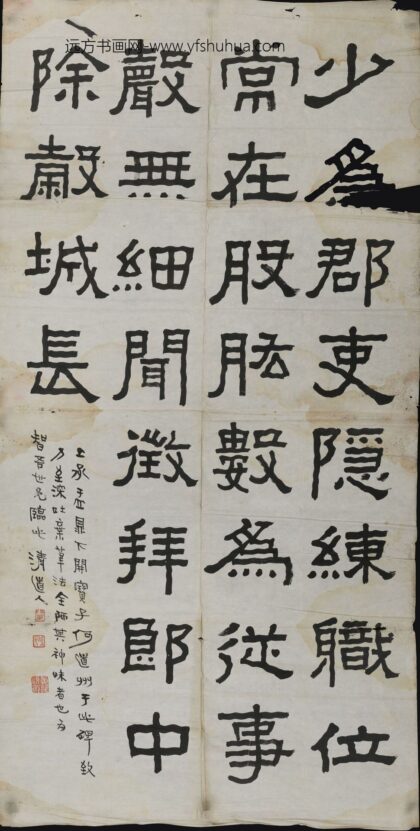 远方书画网-www.yfshuhua.com
少爲郡吏隱練職位
常在股肱數爲從事
聲無細聞徵拜郎中
除穀城長
上承盂鼎下開寶子何道州于此碑致
力至深吐棄筆法全師其神味者也为
智吾世兄臨此 清道人